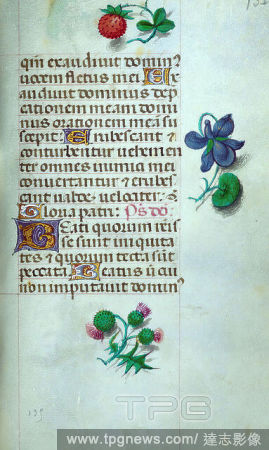 qm exaudivit domin⁹
vocem fletus mei Ex
audivit dominus dep
cationem meam domi
nus orationem mea su
scepit Erubescant &
conturbentur vehemen
ter omnes inimici mei
convertantur & erubes
cant valde velociter
Gloria patri ps dd
Beati quorum remis
se sunt iniquita
tes & quorum tecta sūt
peccata Beatus vi cui
non imputavit domin⁹
139
TPG
www.tpgnews.com / 達志影像